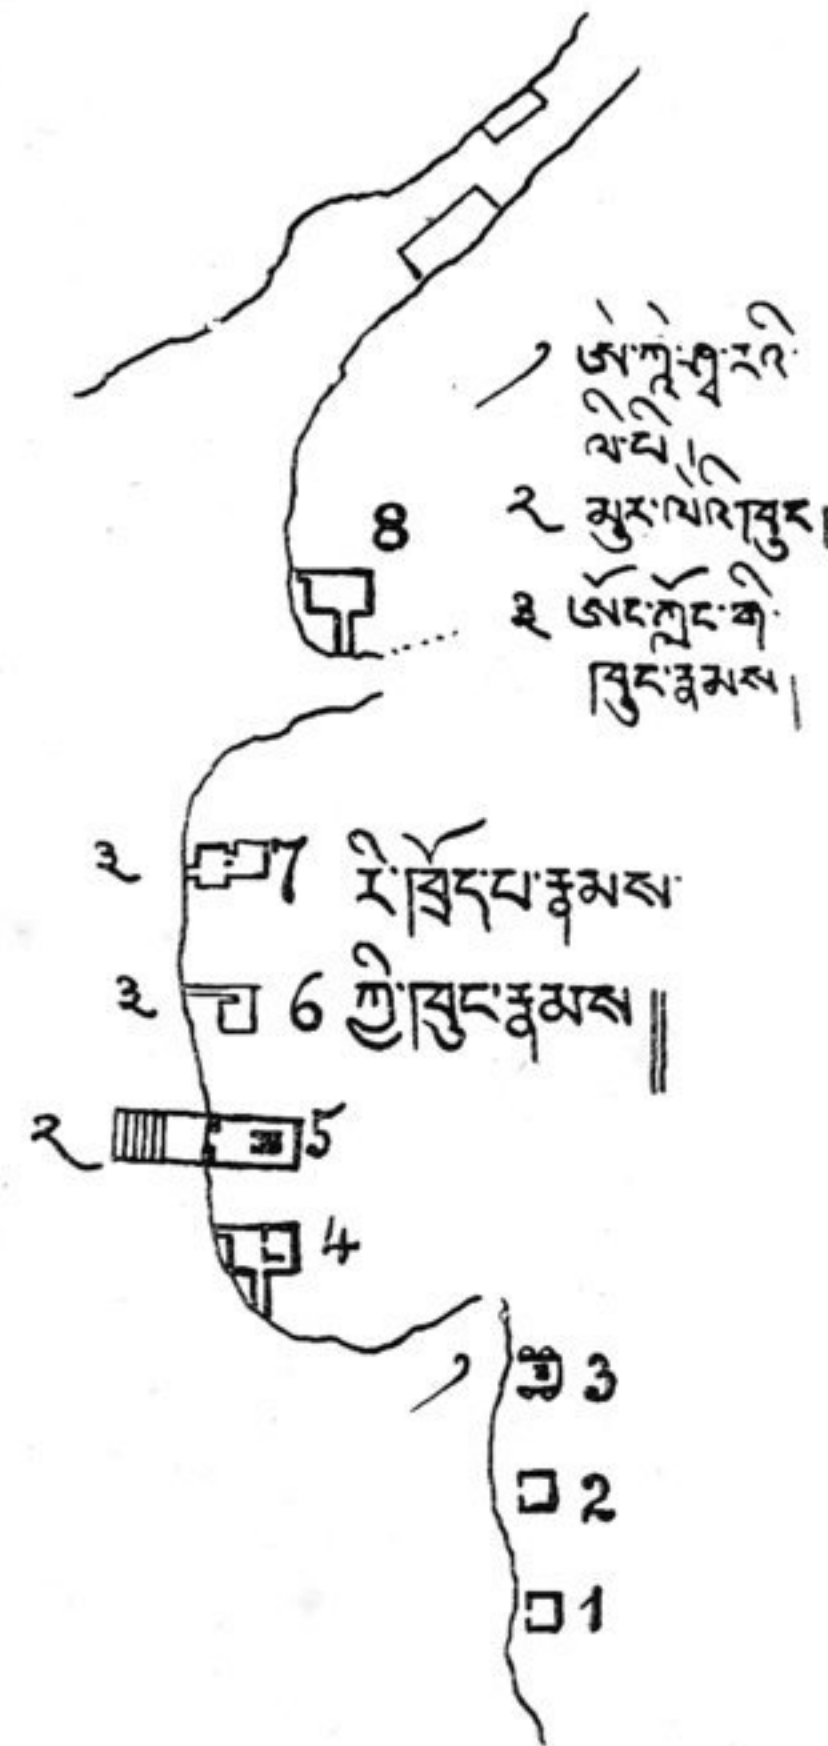 ༡ ཨེ་ཀླེ་ཤྭ་རའི་
ལི་པི།
8
༢ མུར་ལེའི་ཁུང།
༣ ཨོང་ཀློང་གི་
ཁུང་རྣམས།
༣ 7 རི་ཁྲོད་པ་རྣམས་
༣ 6 ཀྱི་ཁུང་རྣམས༎
༢ 5
4
༡ 3
2
1